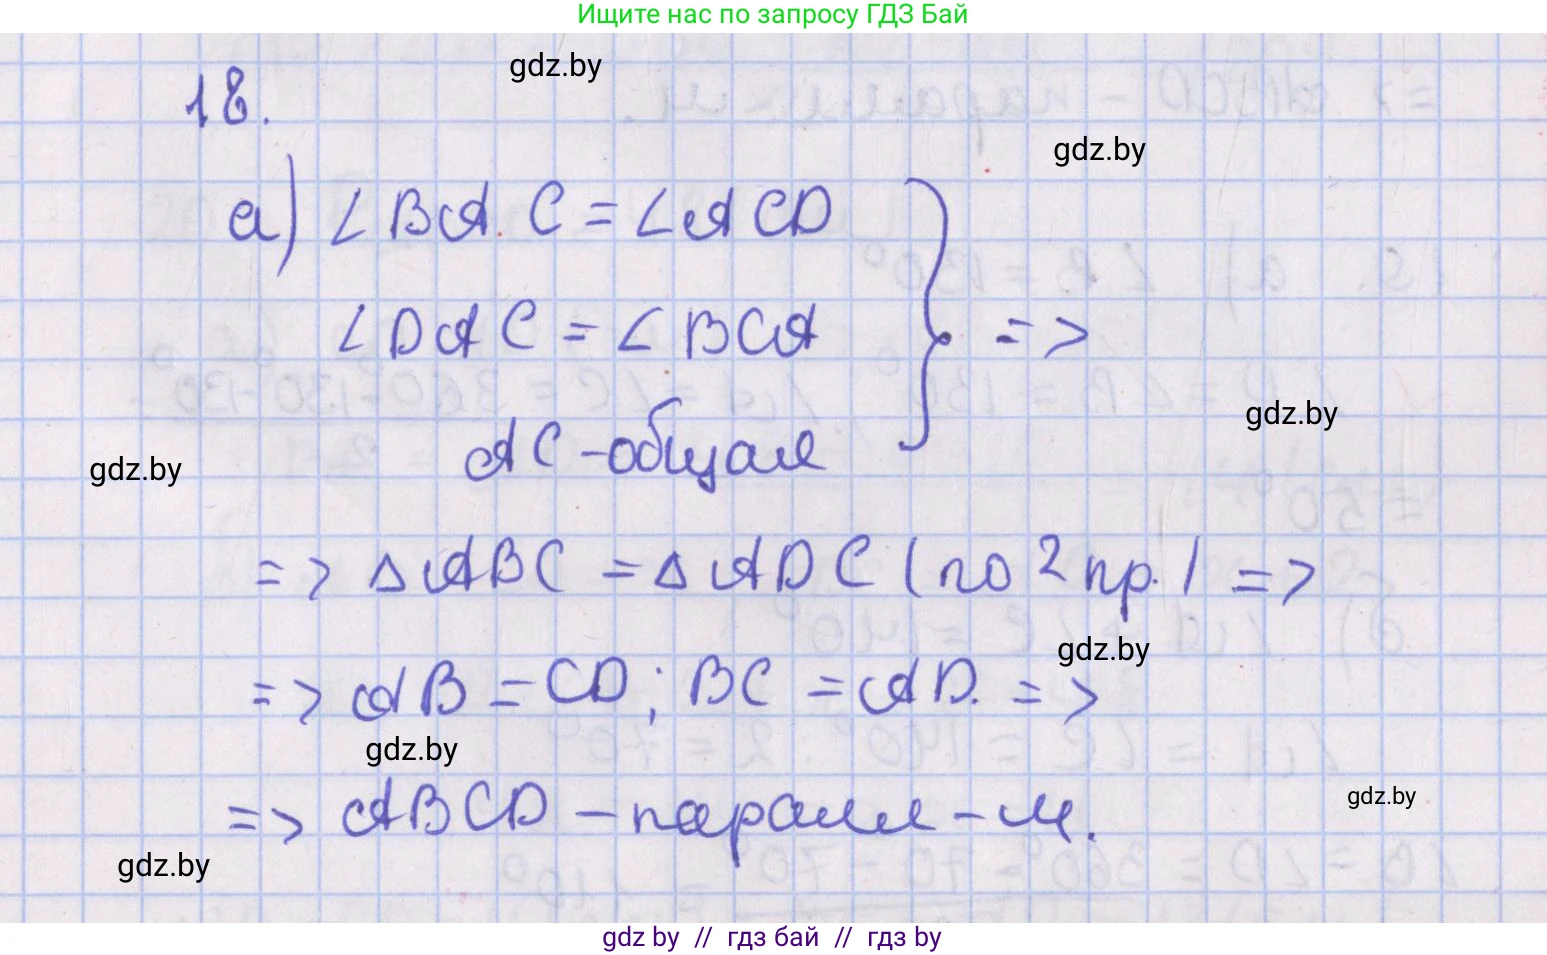 Ищите нас по запросу ГДЗ Бай
gdz.by
18.
gdz.by
а) ∠BAC = ∠ACD
∠DAC = ∠BCA } =>
gdz.by
AC - общая
gdz.by
=> △ABC = △ADC (по 2 пр.) =>
gdz.by
=> AB = CD; BC = AD. =>
gdz.by
gdz.by
=> ABCD - паралл-м.
gdz.by
gdz by // гдз бай // гдз by